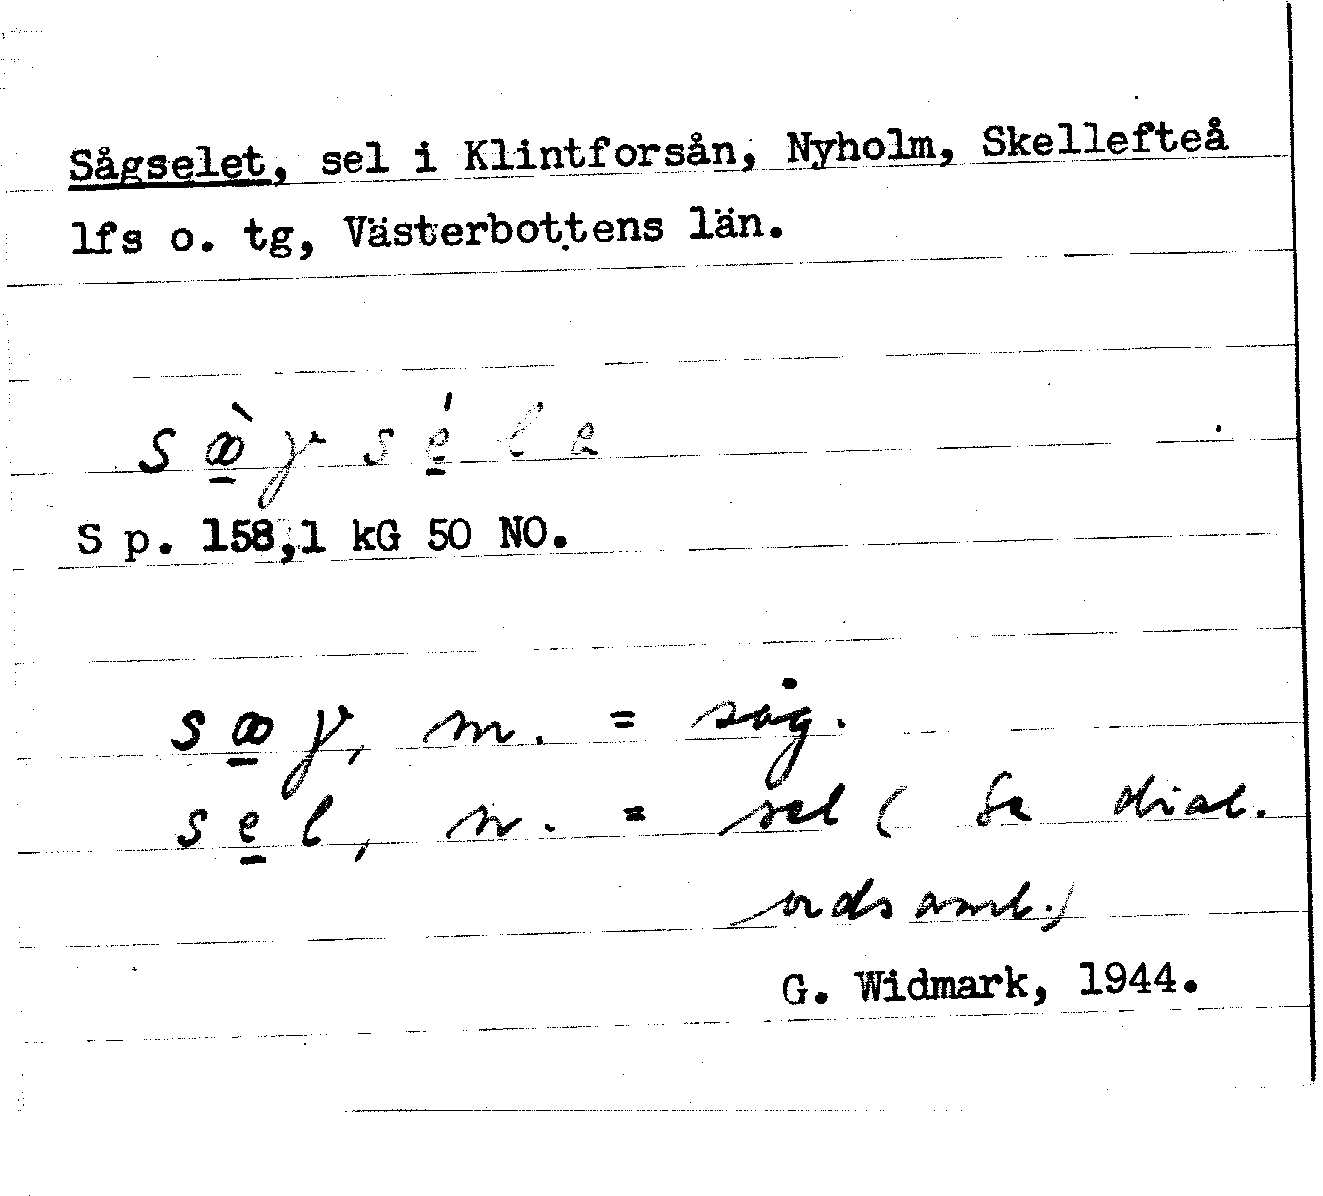 Sågselet, sel i Klintforsån, Nyholm, Skellefteå
lfs o. tg, Västerbottens län.
sꝏ̱̀γsé̱la
S p. 158,1 kG 50 NO.
sꝏ̱γ, m. = såg.
se̱l, n. = sel ( Se dial.
ordsaml.)
G. Widmark, 1944.